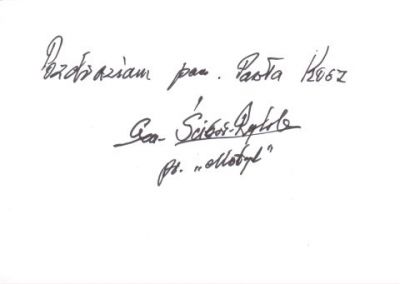 Pozdrawiam pan. Pawła
Gen. Ścibor-Rylski
ps. „Motyl"